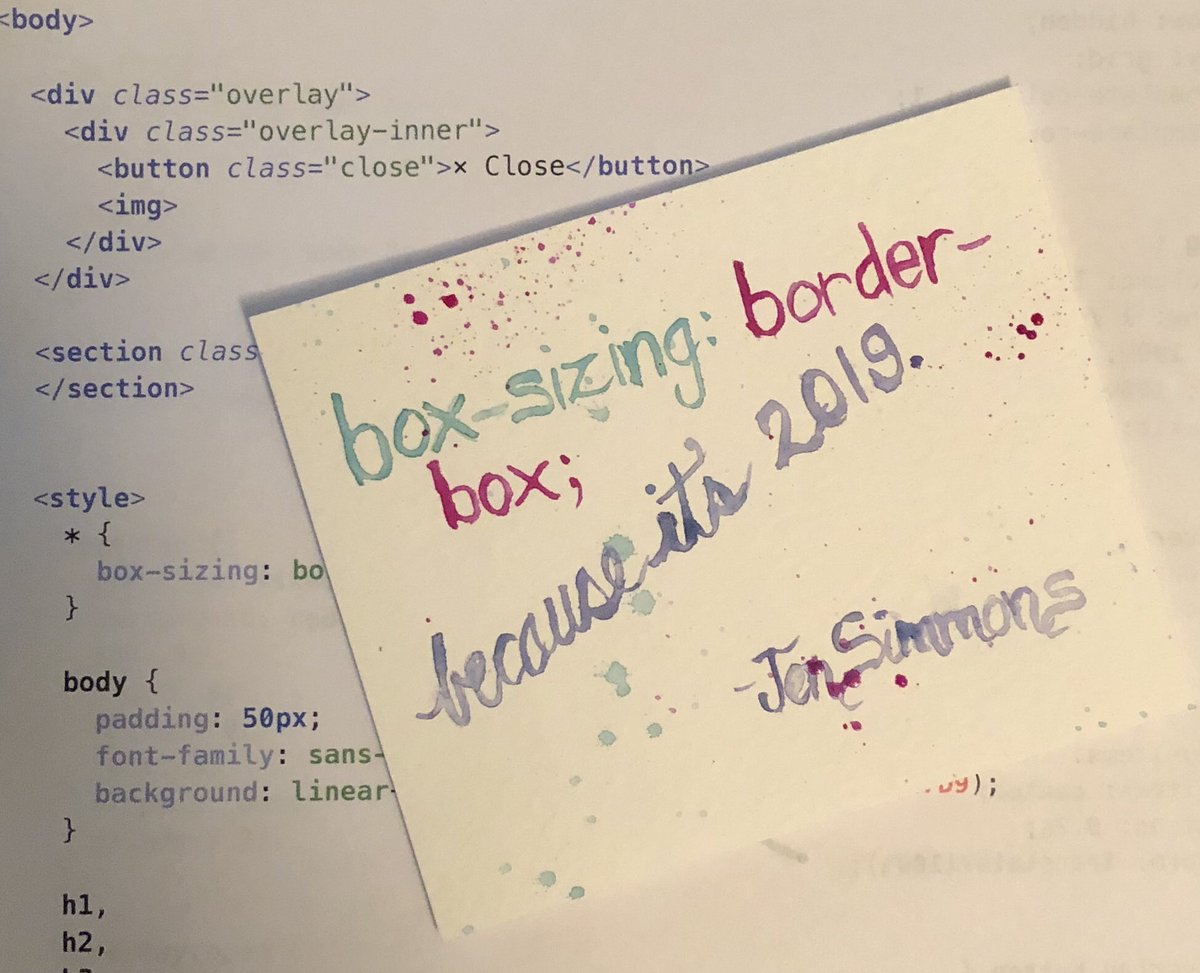 <body>
<div class="overlay">
<div class="overlay-inner">
<button class="close">× Close</button>
<img>
</div>
</div>
<section class
</section>
<style>
* {
box-sizing: bo
}
body {
padding: 50px;
font-family: sans-
background: linear-
);
}
h1,
h2,
box-sizing: border-
box;
because it's 2019.
-Jen Simmons